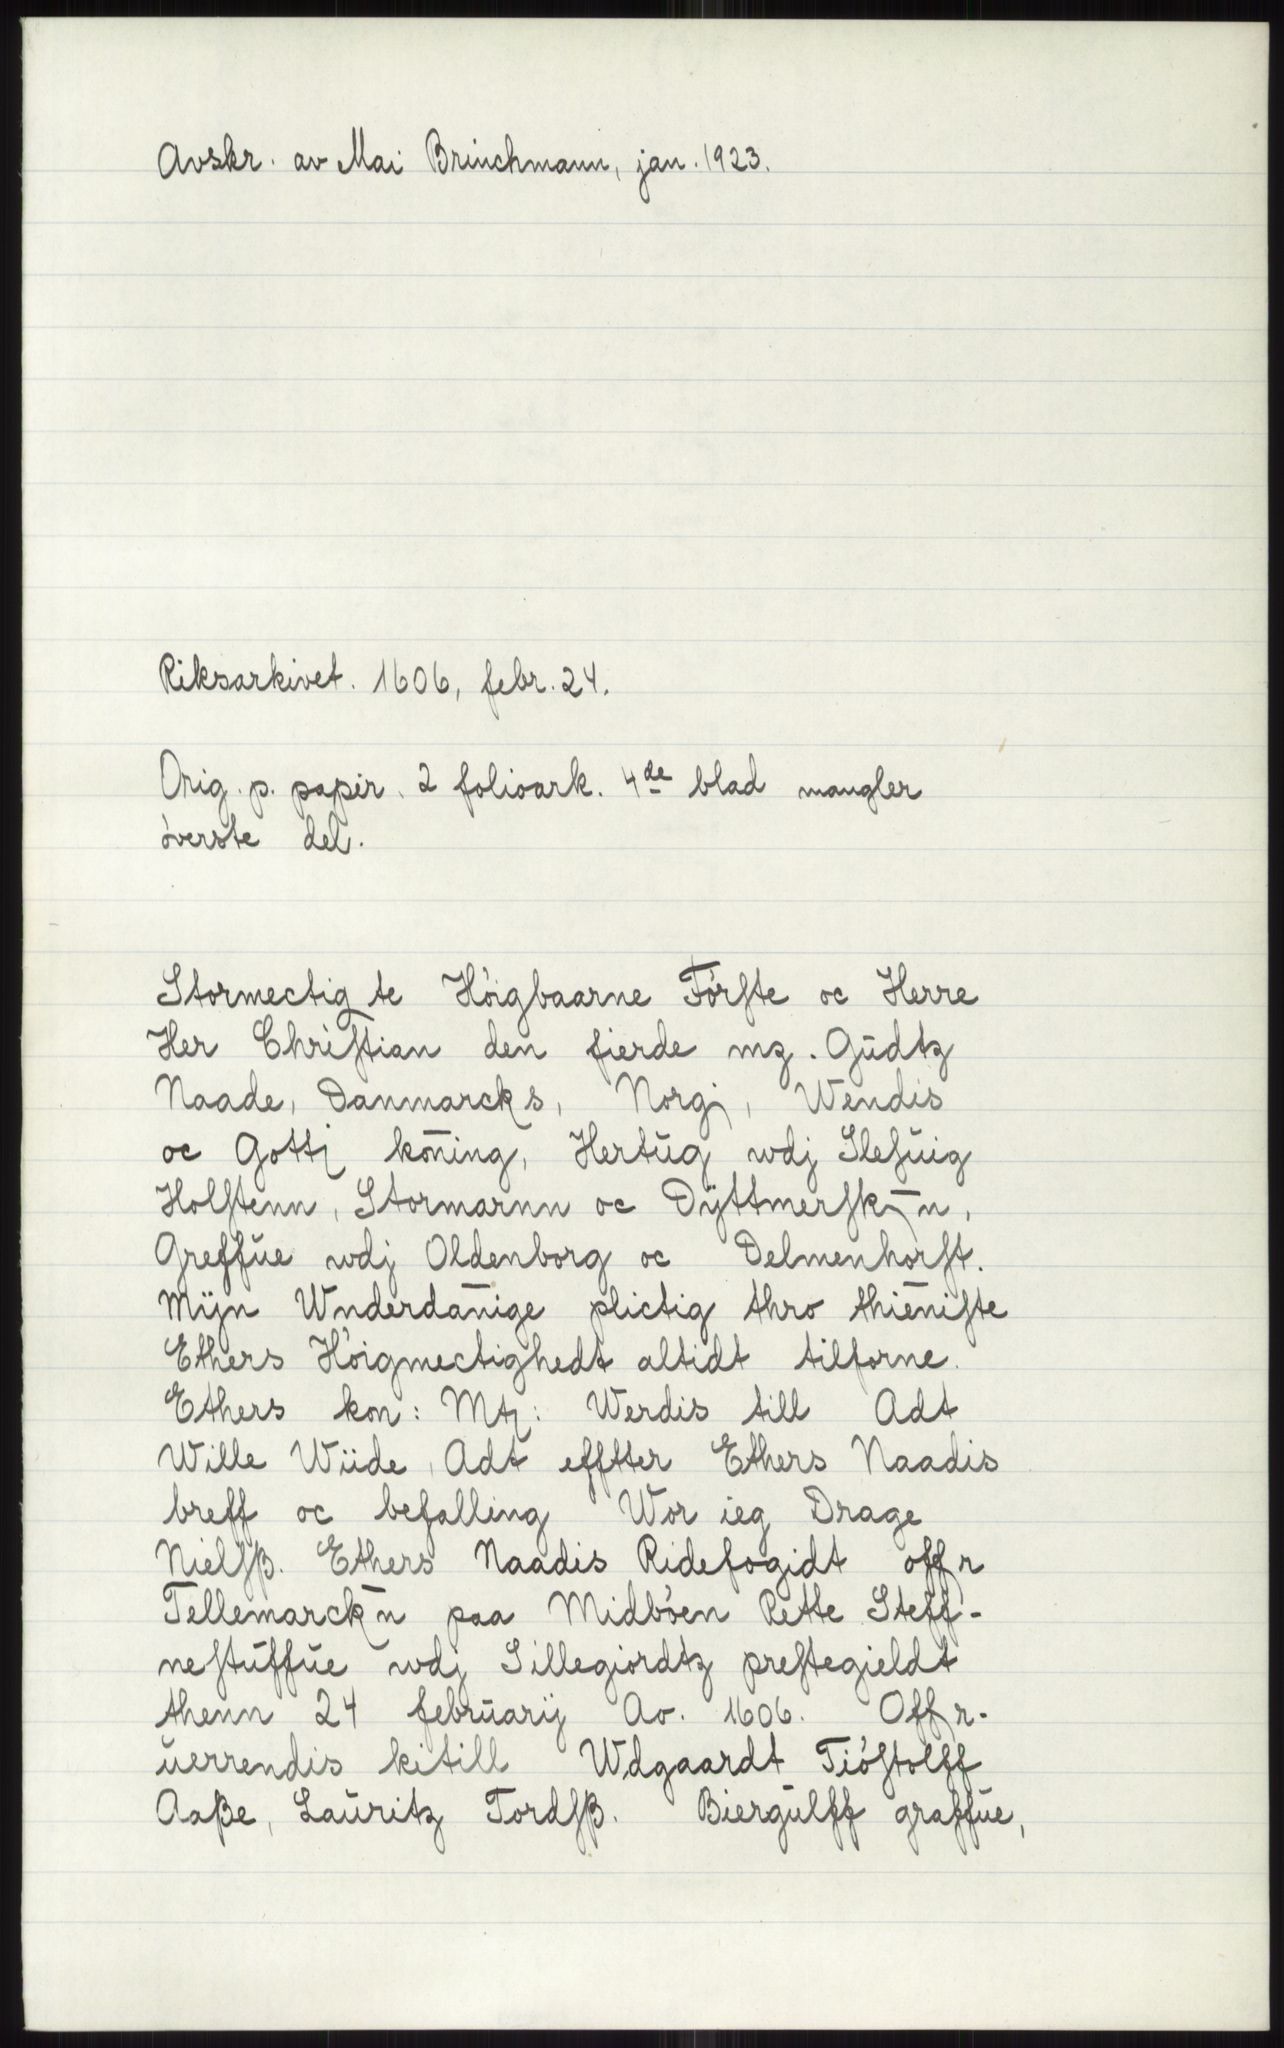 Avskr. av Mai Brinchmann, jan. 1923.
Riksarkivet. 1606, febr. 24.
Orig. p. papir. 2 folioark. 4de blad mangler
óverste del.
Stormectigste Hóigbaarne Fórste oc Herre
Her Christian den fierde mz. Gudtz
Naade, Danmarcks, Norgj, Wendis
oc Gottj kōning, Hertug wdj Slesuig
Holstenn, Stormarnn oc Dÿttmerskn̄,
Greffue wdj Oldenborg oc Delmenhorst.
Mijn Wnderdānige plictig thro thieniste
Ethers Hóigmectighedt altidt tilforne.
Ethers kon: Mtz: Werdis till Adt
Wille Wiide, Adt effter Ethers Naadis
breff oc befalling Wor ieg Drage
Nielsß. Ethers Naadis Ridefogidt offr
Tellemarckn̄ paa Midbóen Rette Steff-
nestuffue wdj Sillegiordtz prestegieldt
thenn 24 februarij Ao. 1606. Offr-
uerrendis kitill Wdgaardt Tióstolff
Aaße, Lauritz Tordsß. Biergulff graffue,